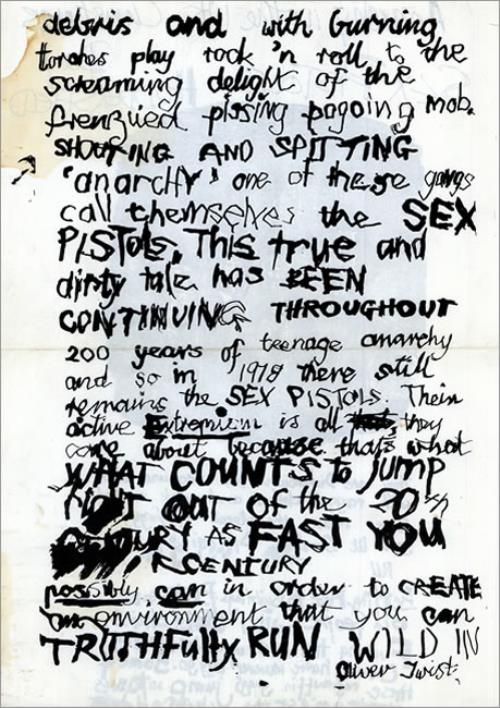 debris and with burning
torches play rock 'n roll to the
screaming delight of the
frenzied pissing pogoing mob.
SHOUTING AND SPITTING
'anarchy' one of these gangs
call themselves the SEX
PISTOLS. This true and
dirty tale has BEEN
CONTINUING THROUGHOUT
200 years of teenage anarchy
and so in 1978 there still
remains the SEX PISTOLS. Their
active Extremism is all they
care about because that's what
WHAT COUNTS to jump
OUT of the 20th
CENTURY AS FAST AS YOU
CENTURY
possibly can in order to CREATE
an environment that you can
TRUTHFULLY RUN WILD IN
Oliver Twist.